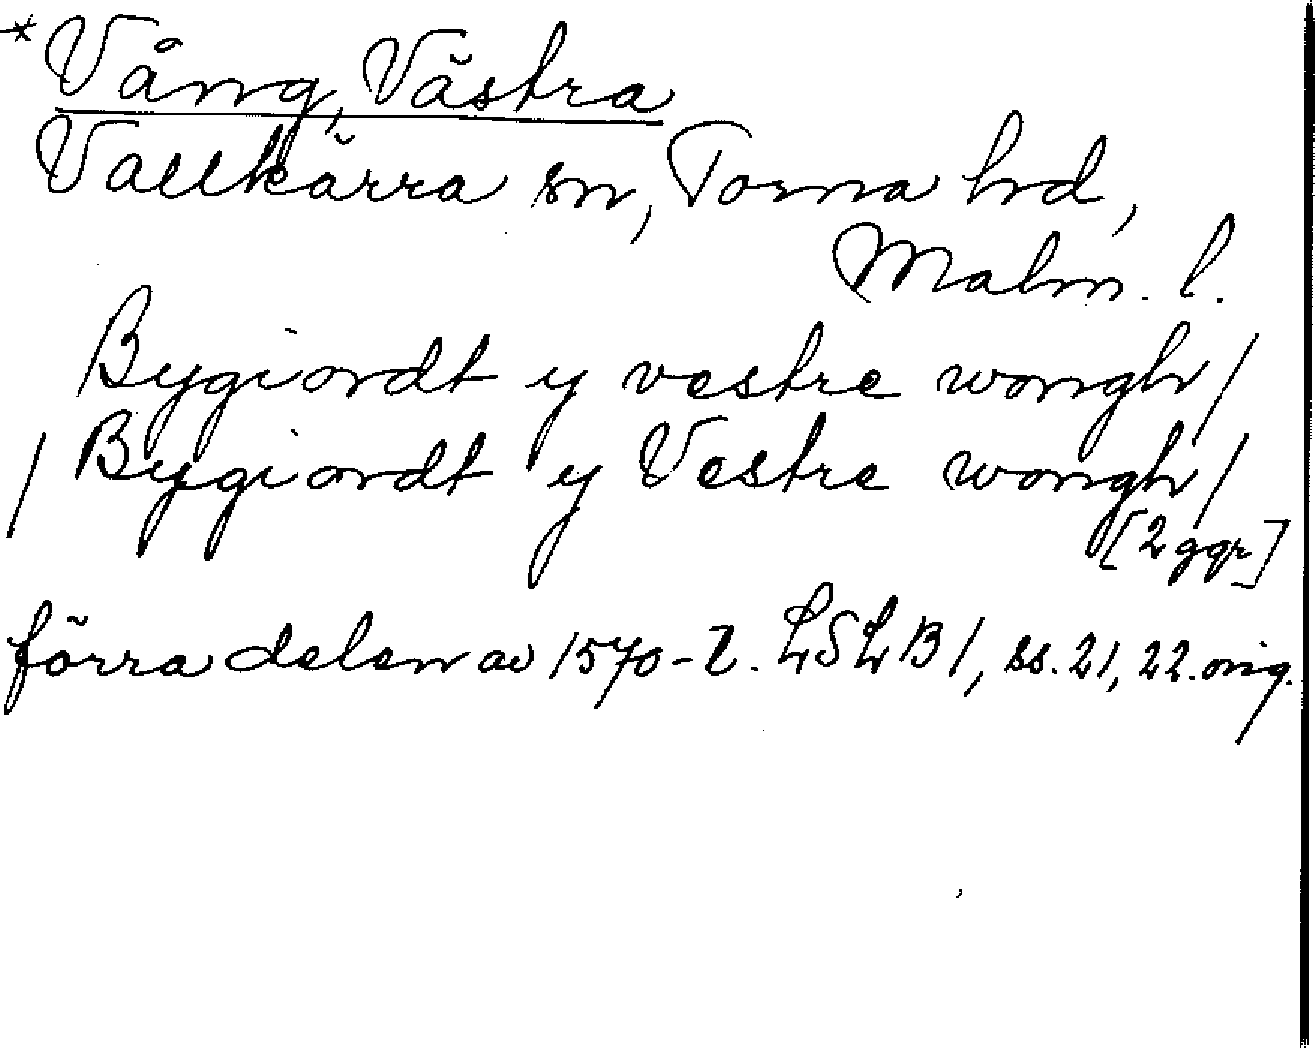 *Vång, Västra
Vallkärra sn, Torna hd,
Malm. l.
Bygiordt y vestre wongh/
/Bygiordt y Vestre wongh/
[2 ggr]
förra delen av 1570-t. LSLB1, ss. 21, 22. orig.